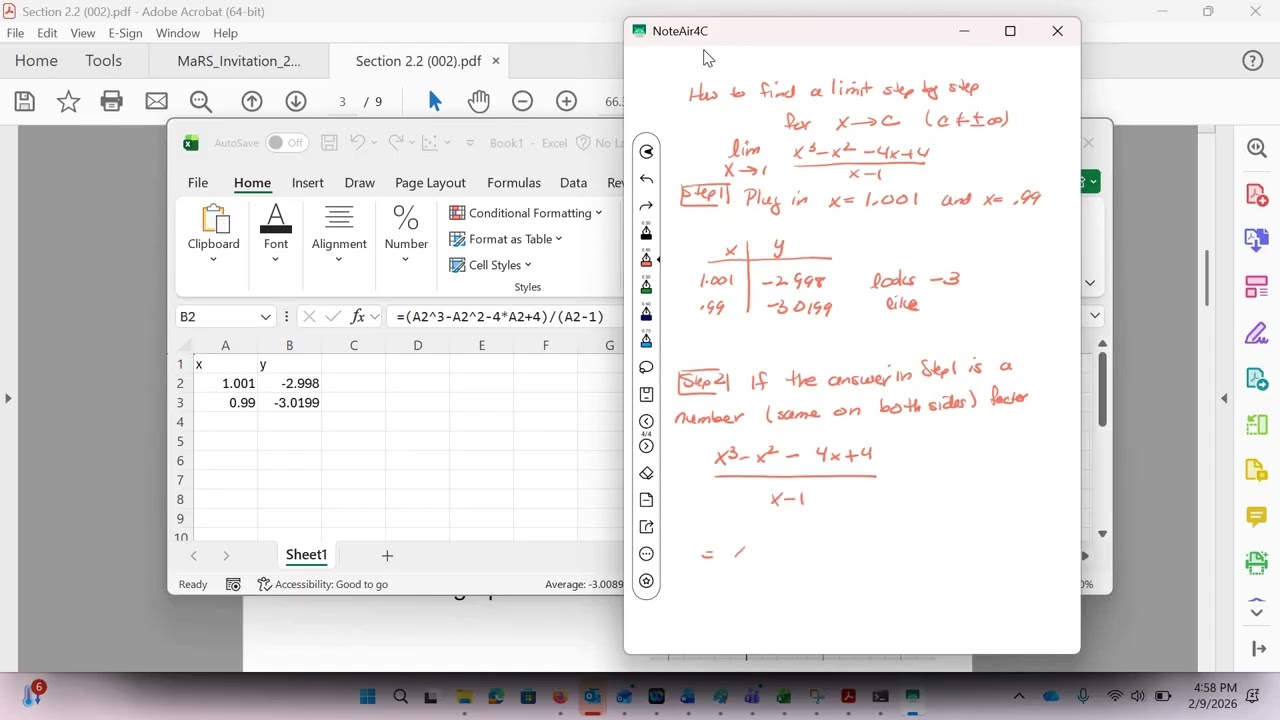 Section 2.2 (002).pdf - Adobe Acrobat (64-bit)
File Edit View E-Sign Window Help
Home Tools MaRS_Invitation_2... Section 2.2 (002).pdf ×
3 / 9 66.
AutoSave Off Book1 - Excel No La
File Home Insert Draw Page Layout Formulas Data Re
Clipboard Font Alignment Number
Conditional Formatting
Format as Table
Cell Styles
Styles
B2 fx =(A2^3-A2^2-4*A2+4)/(A2-1)
A B C D E F G
1 x y
2 1.001 -2.998
3 0.99 -3.0199
4
5
6
7
8
9
10
Sheet1 +
Ready Accessibility: Good to go Average: -3.0089 0%
NoteAir4C
How to find a limit step by step
for x→c (c ≠ ±∞)
lim x→1 x³-x²-4x+4 / x-1
Step 1 Plug in x=1.001 and x=.99
x y
1.001 -2.998 looks -3
.99 -3.0199 like
Step 2 If the answer in Step 1 is a
number (same on both sides) factor
x³-x²- 4x+4
x-1
= (
4/4
6
4:58 PM
2/9/2026